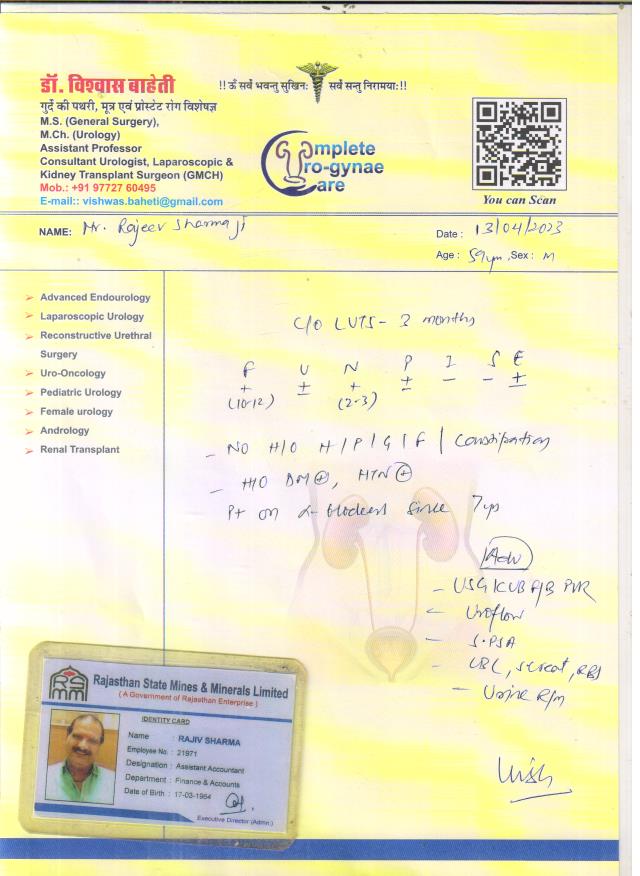 डॉ. विश्वास बाहेती
गुर्दे की पथरी, मूत्र एवं प्रोस्टेट रोग विशेषज्ञ
M.S. (General Surgery),
M.Ch. (Urology)
Assistant Professor
Consultant Urologist, Laparoscopic &
Kidney Transplant Surgeon (GMCH)
Mob.: +91 97727 60495
E-mail:: vishwas.baheti@gmail.com
!! ॐ सर्वे भवन्तु सुखिनः सर्वे सन्तु निरामयाः !!
Complete
Uro-gynae
Care
You can Scan
NAME: Mr. Rajeev Sharma ji
Date : 13/04/2023
Age : 59 yrs, Sex : M
Advanced Endourology
Laparoscopic Urology
Reconstructive Urethral
Surgery
Uro-Oncology
Pediatric Urology
Female urology
Andrology
Renal Transplant
C/O LUTS - 3 months
F U N P I S E
+ ± + ± - - ±
(10-12) (2-3)
- NO H/O H/P/G/F/ Constipation
- H/O DM ⊕, HTN ⊕
Pt on α-blockers since 7 yrs
Adv
- USG KUB P/B PVR
- Uroflow
- S.PSA
- CBC, S.creat, RBS
- Urine R/M
RSMM
Rajasthan State Mines & Minerals Limited
( A Government of Rajasthan Enterprise )
IDENTITY CARD
Name : RAJIV SHARMA
Employee No. : 21971
Designation : Assistant Accountant
Department : Finance & Accounts
Date of Birth : 17-03-1964
Executive Director (Admn.)